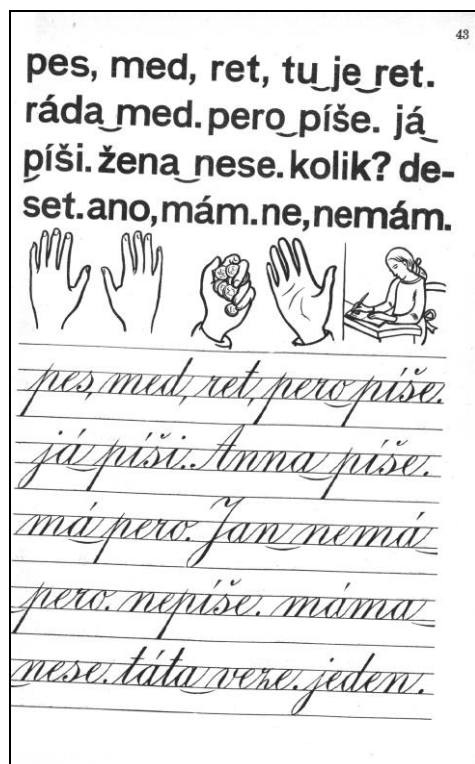 43
pes, med, ret, tu‿je‿ret.
ráda‿med. pero‿píše. já‿
píši. žena‿nese. kolik? de-
set. ano, mám. ne, nemám.
pes, med, ret, pero‿píše.
já‿píši. Anna‿píše.
má‿pero. Jan‿nemá‿
pero. nepíše. máma‿
nese. táta‿veze. jeden.